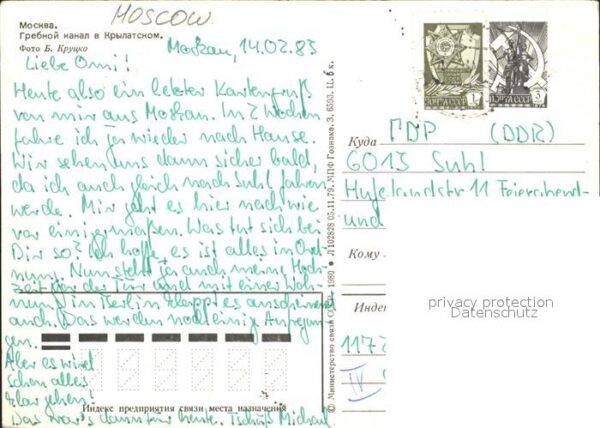 MOSCOW
Москва.
Гребной канал в Крылатском.
Фото Б. Круцко
Moskau, 14.02.83
Liebe Omi!
Heute also ein letzter Kartengruß
von mir aus Moskau. In 2 Wochen
fahre ich ja wieder nach Hause.
Wir sehen uns dann sicher bald,
da ich auch gleich nach Suhl fahren
werde. Mir geht es hier nach wie
vor einigermaßen. Was tut sich bei
Dir so? Ich hoffe, es ist alles in Ord-
nung. Nun steht ja auch meine Hoch-
zeit vor der Tür und mit einer Woh-
nung in Berlin klappt es anscheinend
auch. Das werden noch einige Aufregun-
gen.
Aber es wird
schon alles
klar gehen!
Индекс предприятия связи места назначения
Das war's dann für heute. Tschüß Michael
© Министерство связи СССР, 1980 ● Л 102828 05.11.79. МПФ Гознака. З. 6393. Ц. 6 к.
ПОЧТА СССР 1
ПОЧТА СССР 3
Куда ГДР (DDR)
6013 Suhl
Hufelandstr 11 Feierabend-
und
Кому
privacy protection
Инде
117
IV